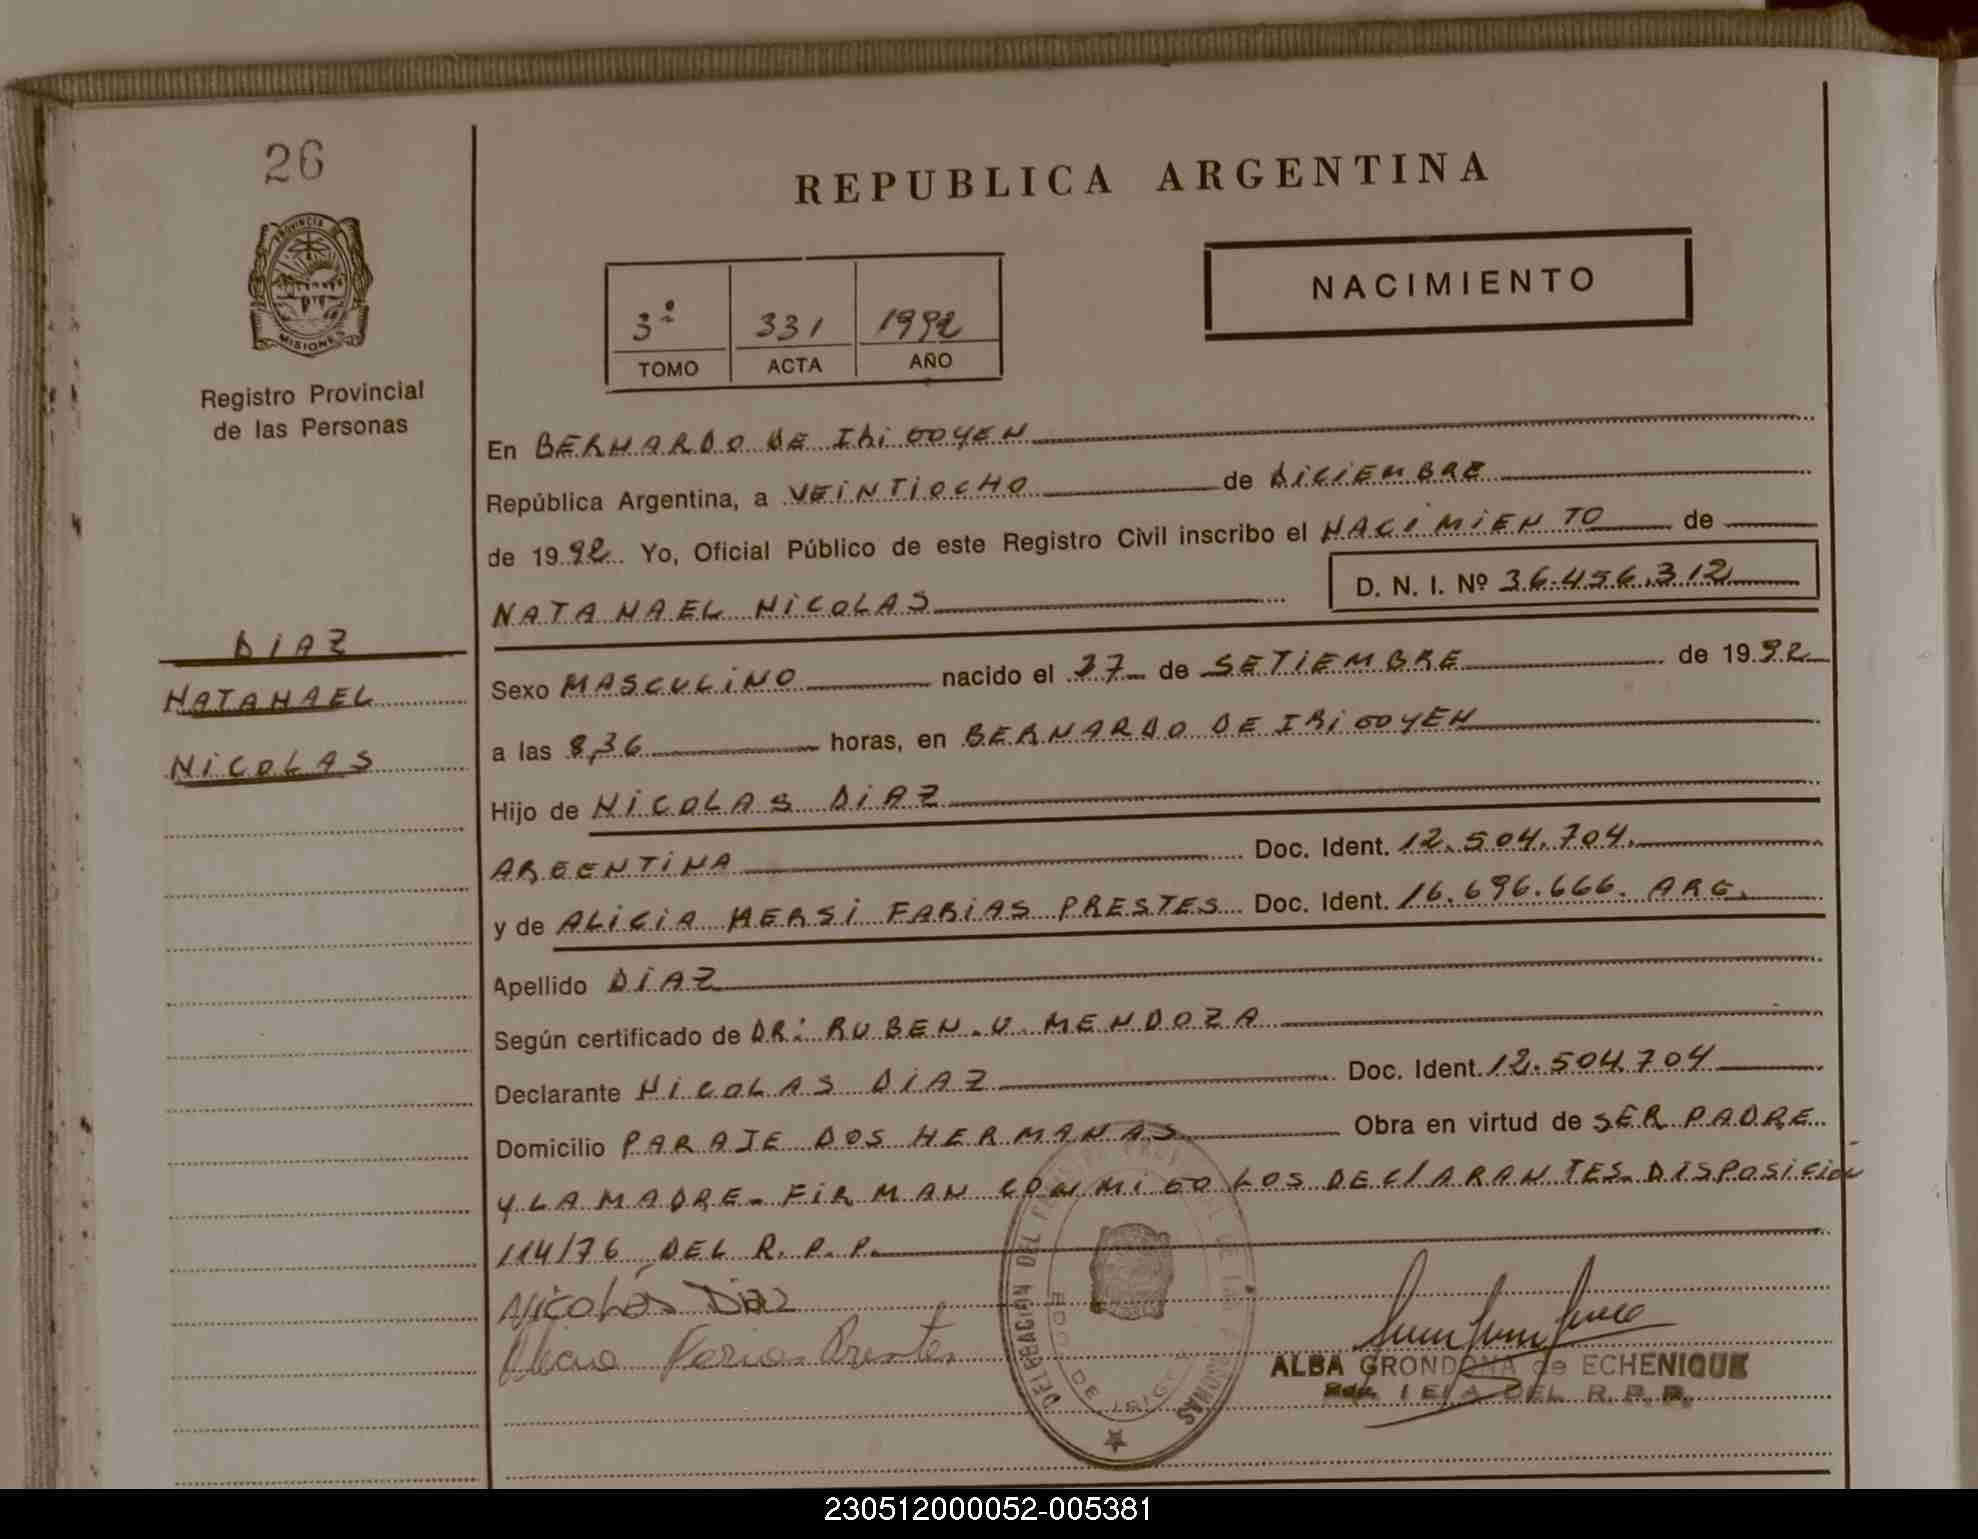 26
REPUBLICA ARGENTINA
PROVINCIA DE
MISIONES
Registro Provincial
de las Personas
3º 331 1992
TOMO ACTA AÑO
NACIMIENTO
En BERNARDO DE IRIGOYEN
República Argentina, a VEINTIOCHO de DICIEMBRE
de 1992 Yo, Oficial Público de este Registro Civil inscribo el NACIMIENTO de
NATANAEL NICOLAS D. N. I. Nº 36.456.312
DIAZ
NATANAEL
NICOLAS
Sexo MASCULINO nacido el 27 de SETIEMBRE de 1992
a las 8,36 horas, en BERNARDO DE IRIGOYEN
Hijo de NICOLAS DIAZ
ARGENTINA Doc. Ident. 12.504.704.
y de ALICIA NERSI FARIAS PRESTES Doc. Ident. 16.696.666. ARG.
Apellido DIAZ
Según certificado de DR: RUBEN. U. MENDOZA
Declarante NICOLAS DIAZ Doc. Ident. 12.504.704
Domicilio PARAJE DOS HERMANAS Obra en virtud de SER PADRE
Y LA MADRE. FIRMAN CONMIGO LOS DEClARANTES. DISPOSICIÓN
114/76 DEL R. P. P.
Nicolás Diaz
Alicia Farias Prestes
DELEGACION DEL PERSONAS
ALBA GRONDONA de ECHENIQUE
DEL R. P. P.
230512000052-005381